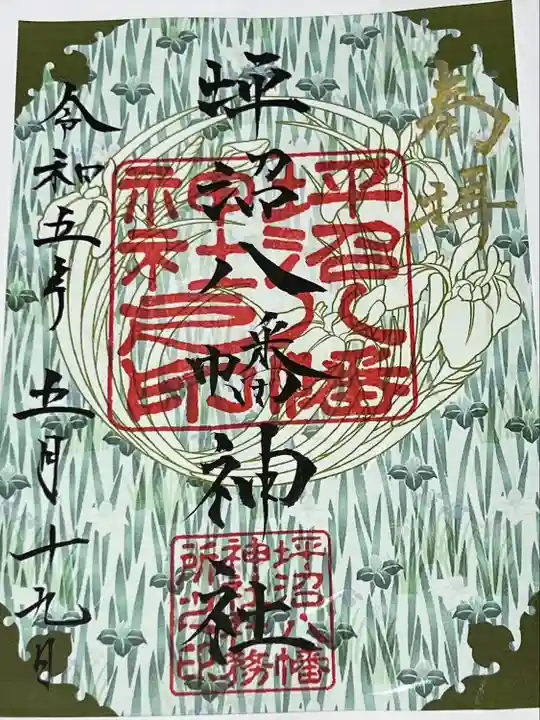 奉拝
坪沼八幡神社
令和五年 五月十九日
坪沼八幡
神社社務
所之印